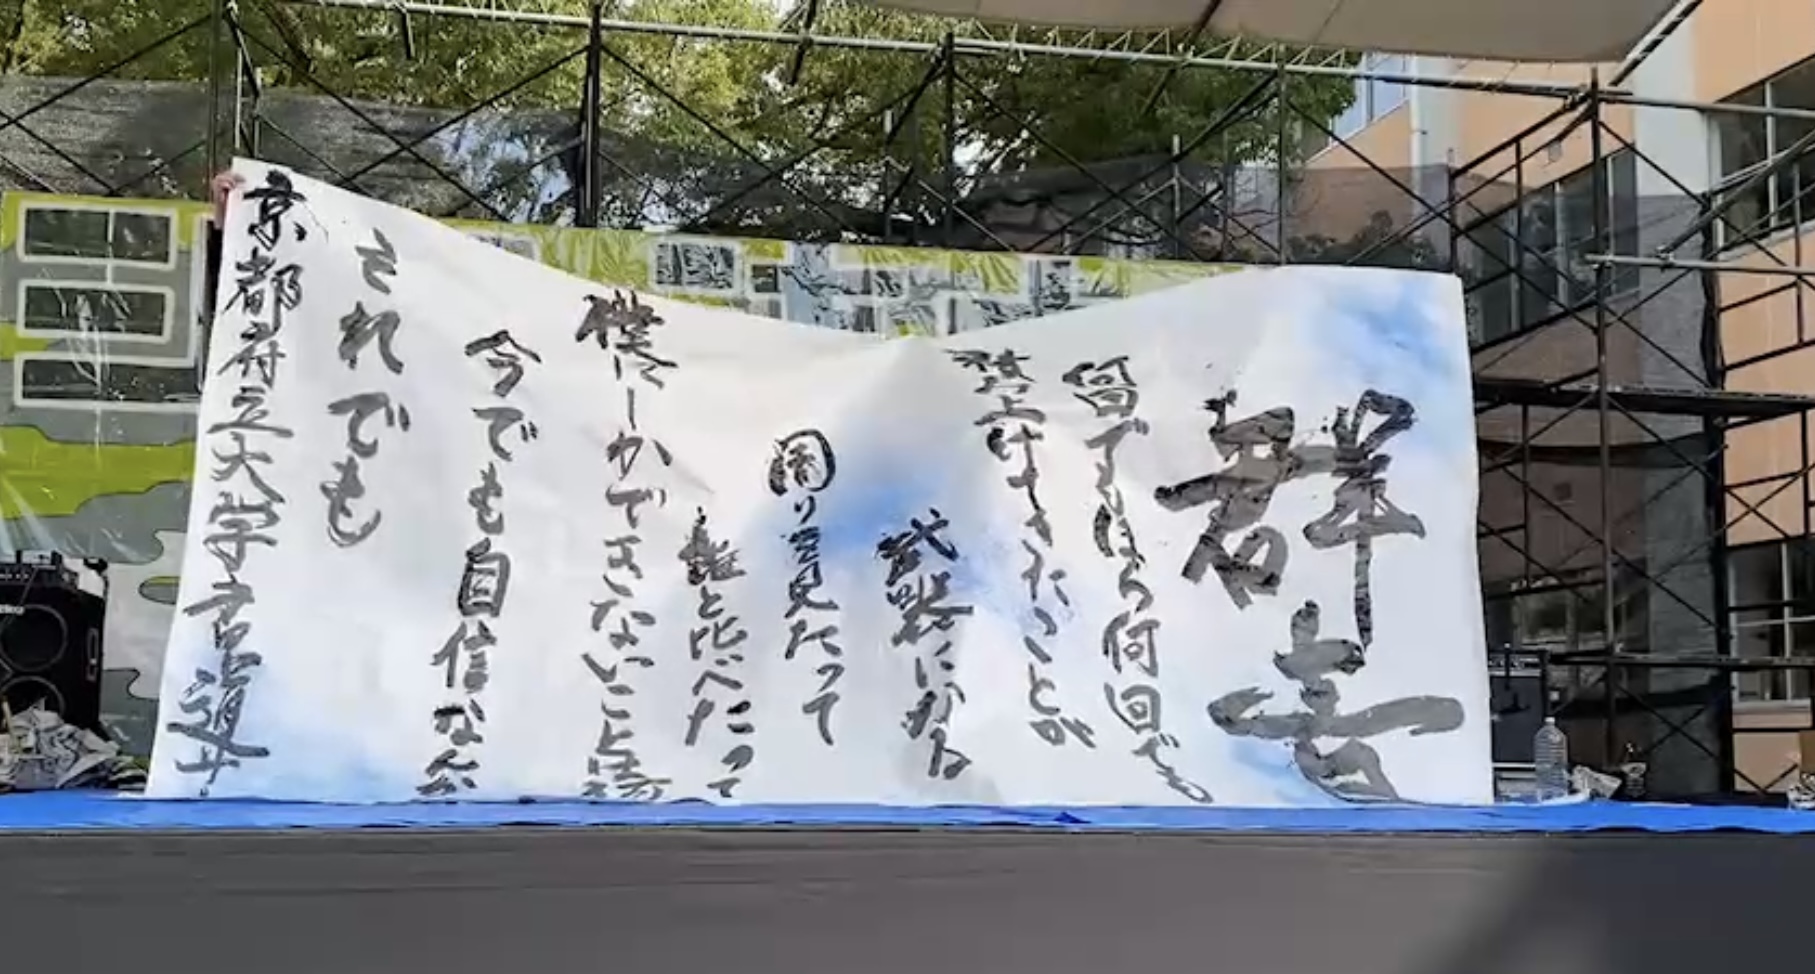 群青
何回でもほら何回でも
積み上げてきたことが
武器になる
周りを見たって
誰と比べたって
僕にしかできないことは
今でも自信なん
それでも
京都府立大学書道サ